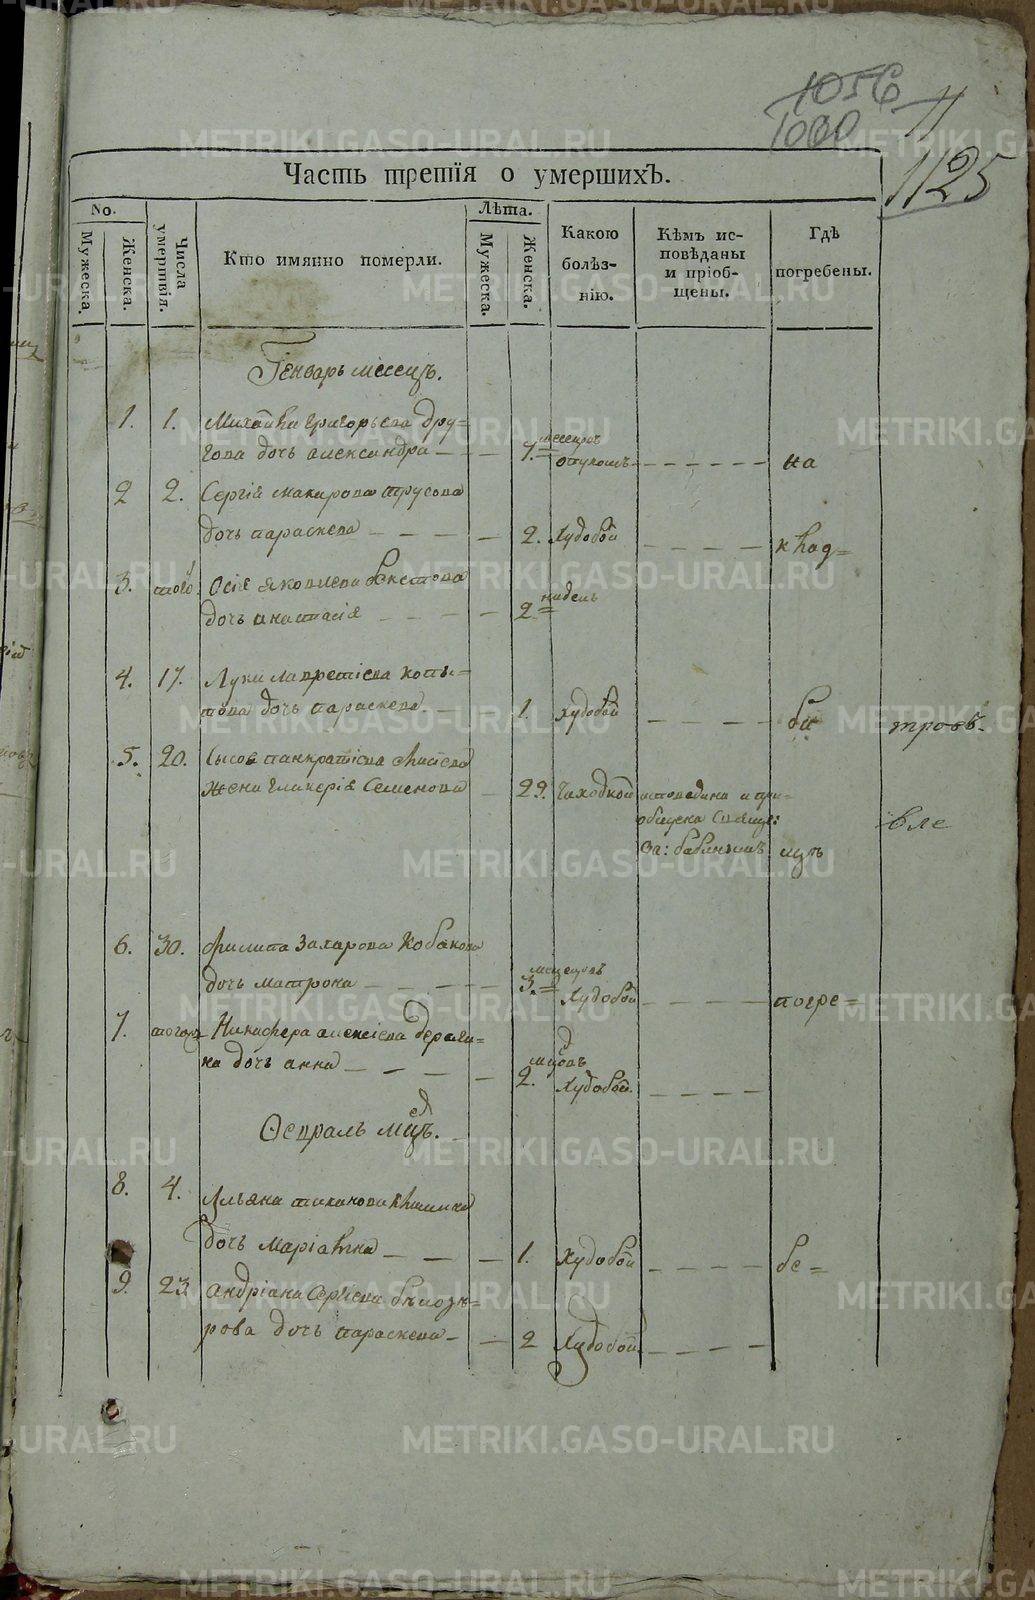 1056
1060
11
1125
Часть третія о умершихъ.
No.
Мужеска.
Женска.
Числа умертвія.
Кто имянно померли.
Лѣта.
Мужеска.
Женска.
Какою болѣз-
нію.
Кѣмъ ис-
повѣданы
и пріоб-
щены.
Гдѣ
погребены.
Генварь месецъ.
1. 1. Григорьева дру-
гова дочь александра 7. месецов на
2 2. Сергія макарова трусова
дочь параскева 2. Худобой клад-
3. того Осія яковлева
дочь анастасія 2 недель
4. 17. Луки лаврентіева копы-
това дочь параскева. 1. худобой би
5. 20. Сысов панкратіева
жена гликерія Семенова 29. чахоткой исповедана и при-
общена Свяще:
6. 30. филипа Захарова Кобакова
дочь матрона 3. месецовъ Худобой погре-
7. Никифера алексіева
дочь анна 2. мцовъ Худобой.
Февраль мцъ.
8. 4. тиханова
дочь Маріамна 1. худобой бе-
9. 23 андріана Сергіева бѣлозе-
рова дочь параскева 2 Худобой
METRIKI.GASO-URAL.RU